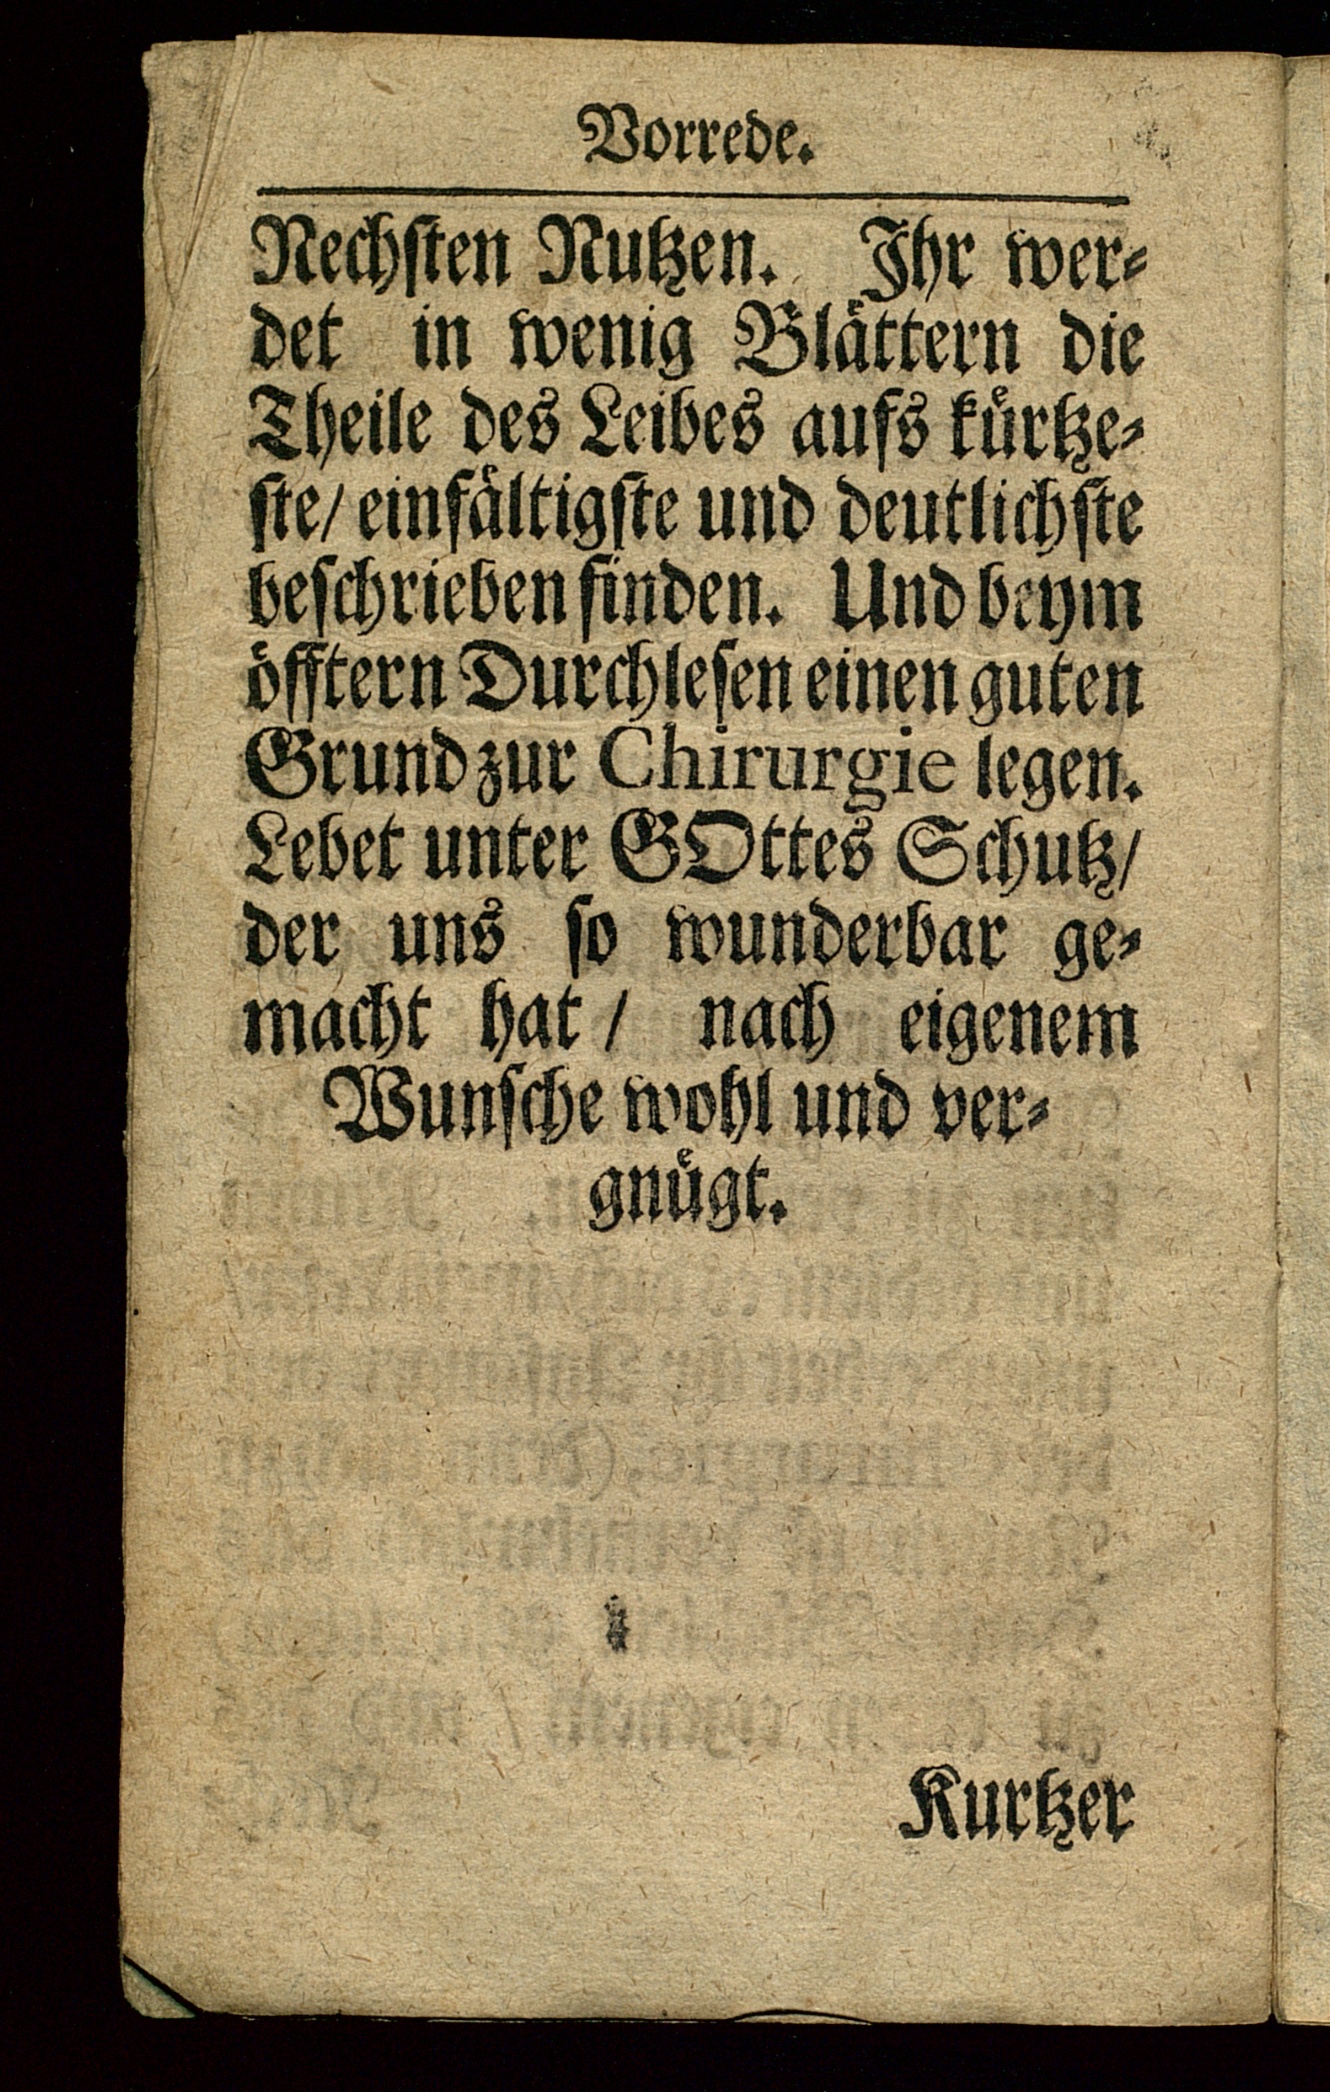 Vorrede.
Nechsten Nutzen. Ihr wer-
det in wenig Blättern die
Theile des Leibes aufs kürtze-
ste/ einfältigste und deutlichste
beschrieben finden. Und beym
öfftern Durchlesen einen guten
Grund zur Chirurgie legen.
Lebet unter GOttes Schutz/
der uns so wunderbar ge-
macht hat / nach eigenem
Wunsche wohl und ver-
gnügt.
Kurtzer